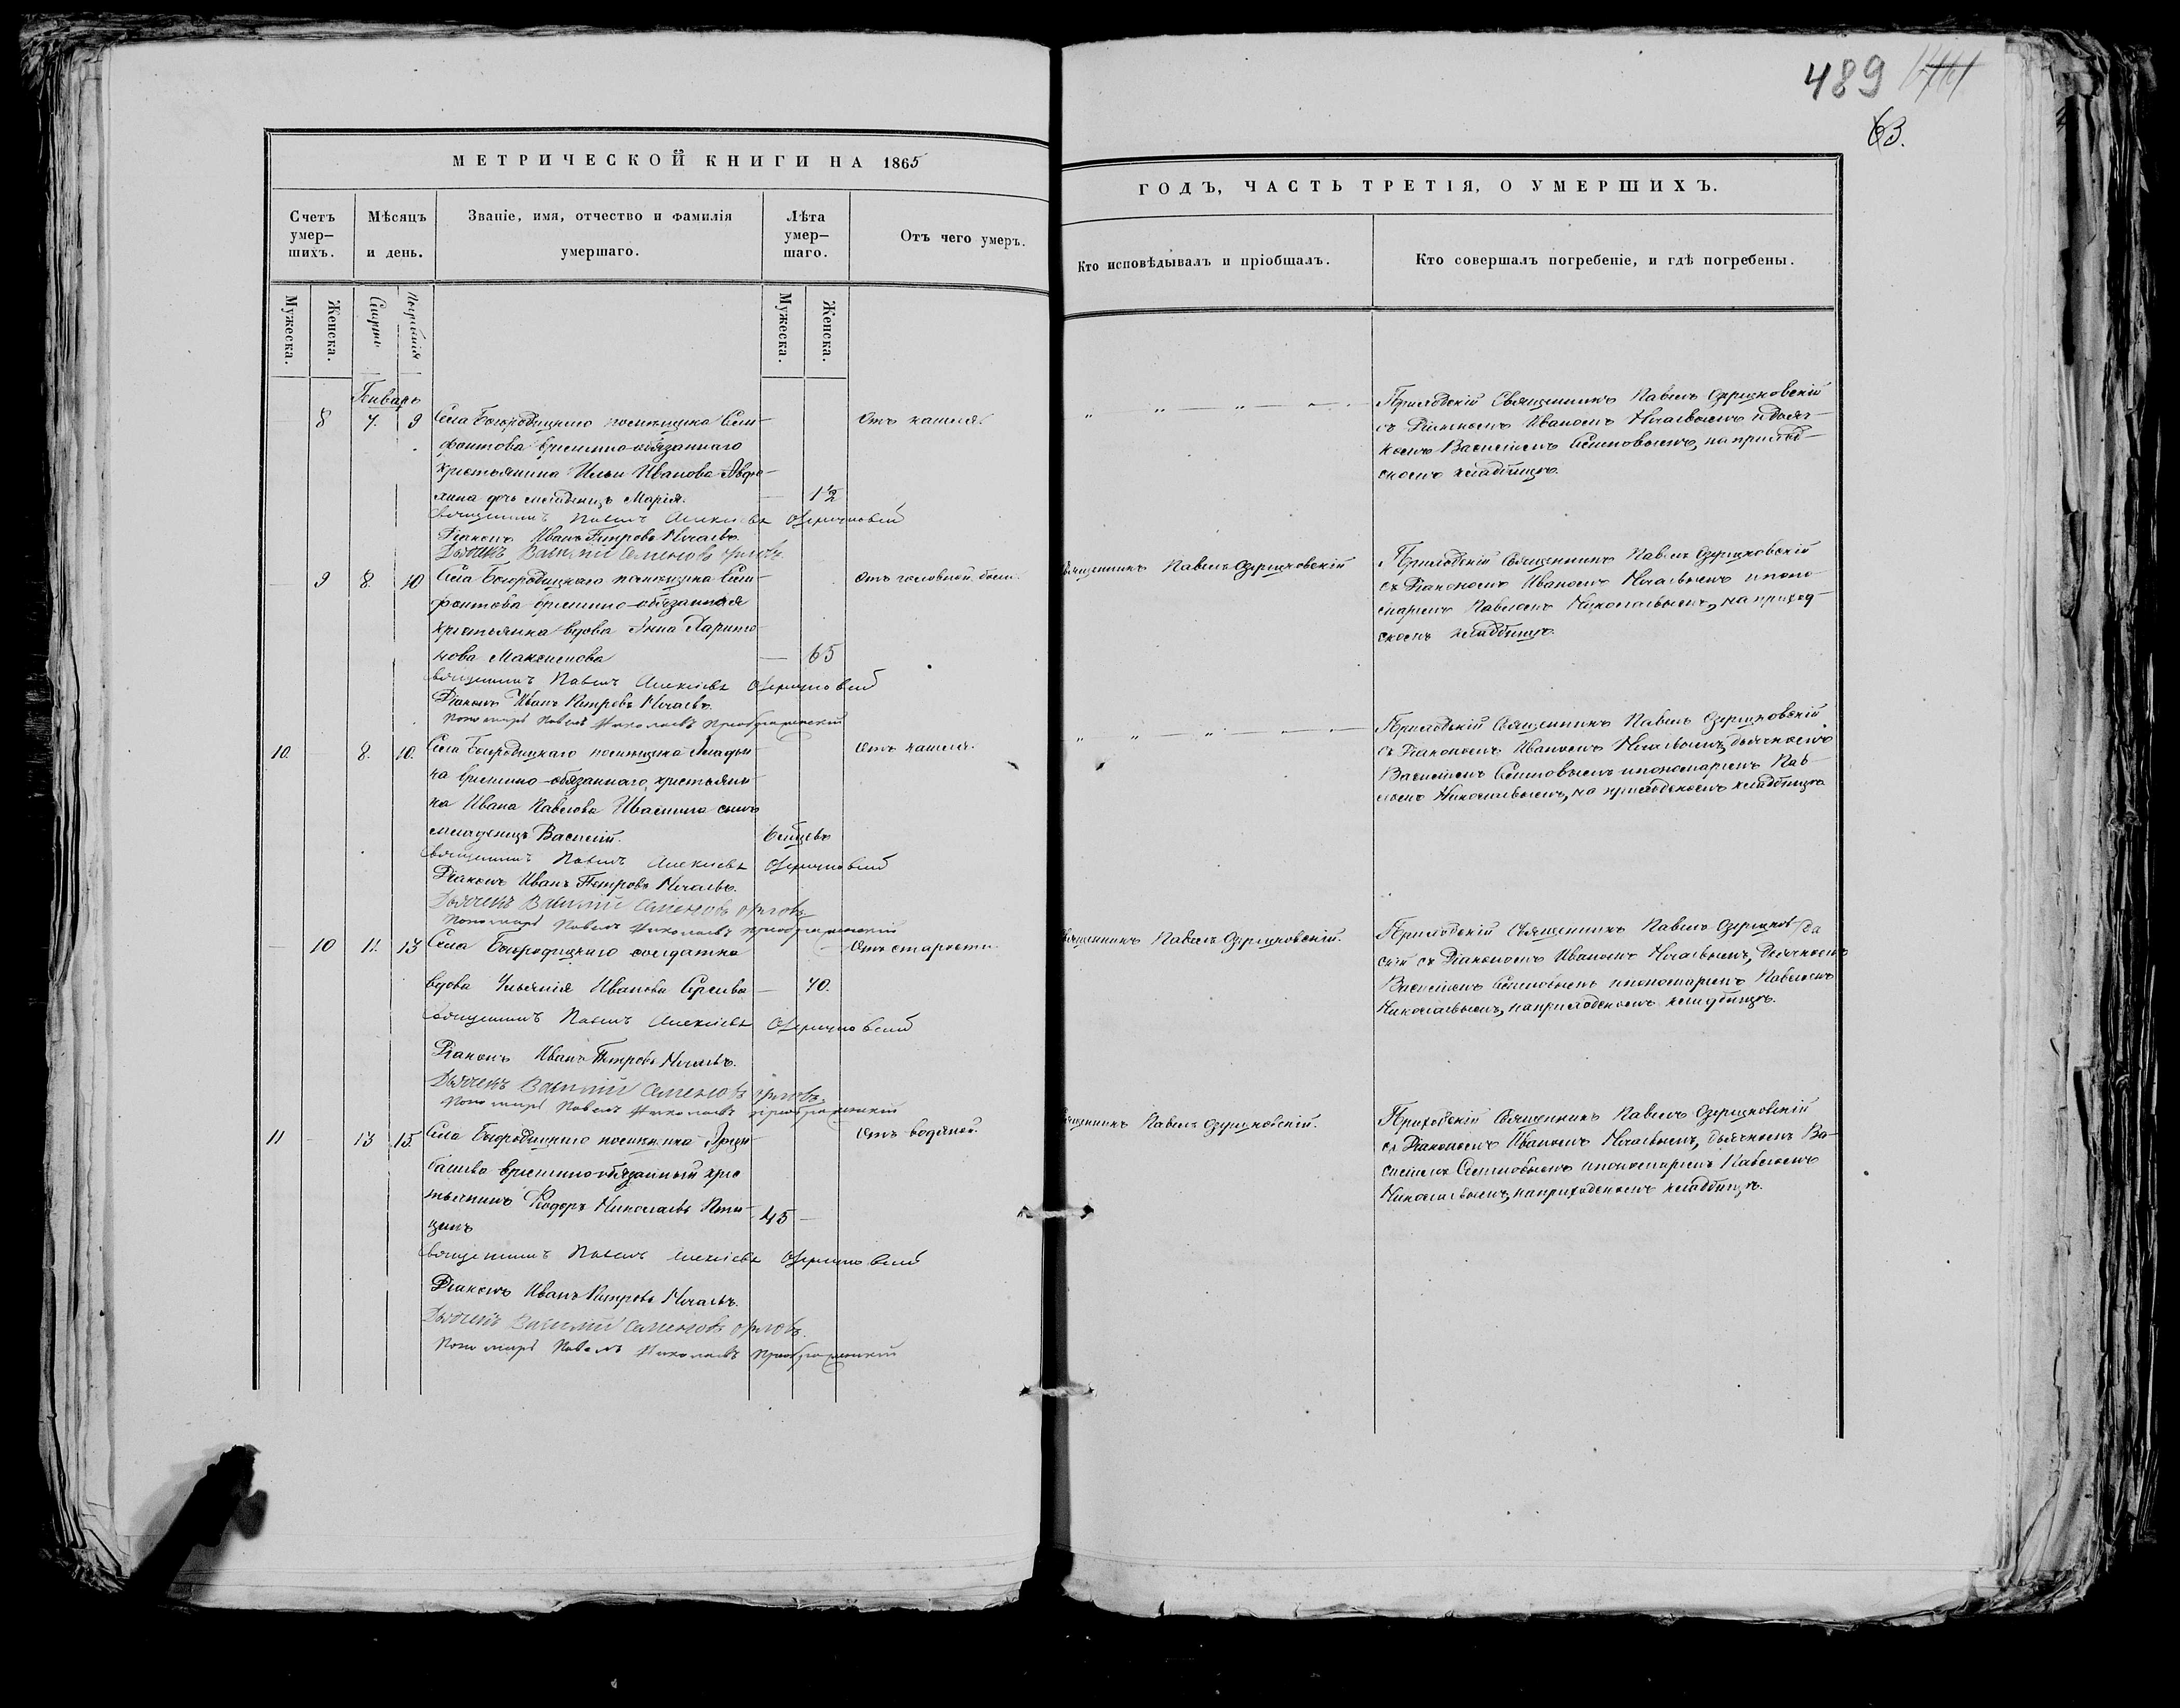 489
63.
МЕТРИЧЕСКОЙ КНИГИ НА 1865
Счетъ умер–шихъ.
Мѣсяцъ и день.
Званіе, имя, отчество и фамилія умершаго.
Лѣта умер–шаго.
Отъ чего умеръ.
Мужеска.
Женска.
Смерти
Погребенія
Мужеска.
Женска.
Январь
8 7. 9 Села Богородицкаго помѣщика
временно-обязаннаго
крестьянина Ильи Иванова
дочь младенецъ Марія. — 1½
Отъ кашля.
Священникъ Павелъ Алексѣевъ Озерицковскій
Діаконъ Иванъ Петровъ Нечаевъ.
Дьячекъ Василий Семеновъ Орловъ.
— 9 8. 10 Села Богородицкаго помѣщика
временно-обязанная
крестьянка вдова Анна Харито–
нова Максимова — 65
Отъ головной боли.
Священникъ Павелъ Алексѣевъ Озерицковскій
Діаконъ Иванъ Петровъ Нечаевъ.
Пономарь Павелъ Николаевъ Преображенскій
10. 8. 10. Села Богородицкаго помѣщика
временно-обязаннаго крестьяни–
на Ивана Павлова сынъ
младенецъ Василій.
Отъ кашля.
Священникъ Павелъ Алексѣевъ Озерицковскій
Діаконъ Иванъ Петровъ Нечаевъ.
Дьячекъ Василий Семеновъ Орловъ
Пономарь Павелъ Николаевъ Преображенскій
— 10 11. 13 Села Богородицкаго солдатка
вдова Ульянія Иванова — 70.
Отъ старости.
Священникъ Павелъ Алексѣевъ Озерицковскій
Діаконъ Иванъ Петровъ Нечаевъ.
Дьячекъ Василий Семеновъ Орловъ.
Пономарь Павелъ Николаевъ Преображенскій
11 – 13 15. Села Богородицкаго помѣщика
временно-обязанный крес–
тьянинъ Ѳодоръ Николаевъ
45 –
Отъ водяной.
Священникъ Павелъ Алексѣевъ Озерицковскій
Діаконъ Иванъ Петровъ Нечаевъ.
Дьячекъ Василий Семеновъ Орловъ.
Пономарь Павелъ Николаевъ Преображенскій
ГОДЪ, ЧАСТЬ ТРЕТІЯ, О УМЕРШИХЪ.
Кто исповѣдывалъ и пріобщалъ.
Кто совершалъ погребеніе, и гдѣ погребены.
„ „ „ „
Приходскій Священникъ Павелъ Озерицковскій
съ Діакономъ Иваномъ Нечаевымъ и дьяч–
комъ Василіемъ Семеновымъ, на приход–
скомъ кладбищѣ.
Священникъ Павелъ Озерицковскій
Приходскій Священникъ Павелъ Озерицковскій
съ Діакономъ Иваномъ Нечаевымъ и поно–
маремъ Павломъ Николаевымъ, на приход–
скомъ кладбищѣ.
„ „ „
Приходскій Священникъ Павелъ Озерицковскій
съ Діакономъ Иваномъ Нечаевымъ, дьячкомъ
Василіемъ Семеновымъ и пономаремъ Пав–
ломъ Николаевымъ, на приходскомъ кладбищѣ
Священникъ Павелъ Озерицковскій.
Приходскій Священникъ Павелъ Озерицков–
скій съ Діакономъ Иваномъ Нечаевымъ, Дьячкомъ
Василіемъ Семеновымъ и пономаремъ Павломъ
Николаевымъ, на приходскомъ кладбищѣ.
Священникъ Павелъ Озерицковскій.
Приходскій Священникъ Павелъ Озерицковскій
съ Діакономъ Иваномъ Нечаевымъ, дьячкомъ Ва–
силіемъ Семеновымъ и пономаремъ Павломъ
Николаевымъ, на приходскомъ кладбищѣ.